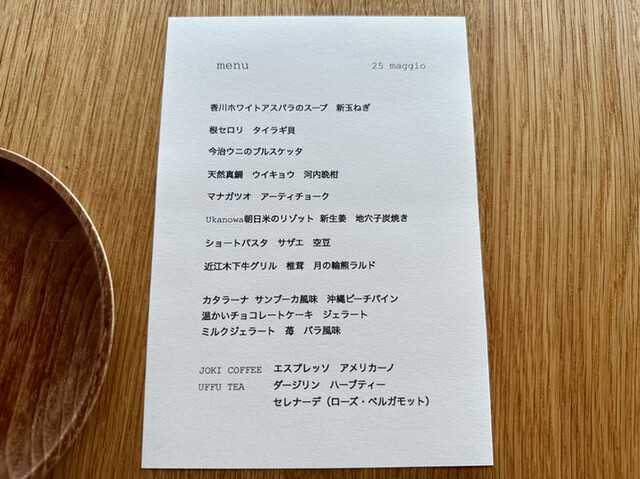 menu 25 maggio
香川ホワイトアスパラのスープ 新玉ねぎ
根セロリ タイラギ貝
今治ウニのブルスケッタ
天然真鯛 ウイキョウ 河内晩柑
マナガツオ アーティチョーク
Ukanowa朝日米のリゾット 新生姜 地穴子炭焼き
ショートパスタ サザエ 空豆
近江木下牛グリル 椎茸 月の輪熊ラルド
カタラーナ サンブーカ風味 沖縄ピーチパイン
温かいチョコレートケーキ ジェラート
ミルクジェラート 苺 バラ風味
JOKI COFFEE エスプレッソ アメリカーノ
UFFU TEA ダージリン ハーブティー
セレナーデ（ローズ・ベルガモット）